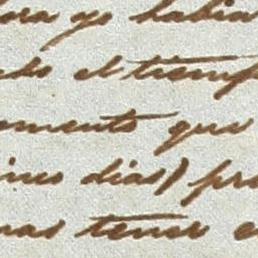 ora yo habia
do el tiemp
omento que
inus dias) pr
nas tener e